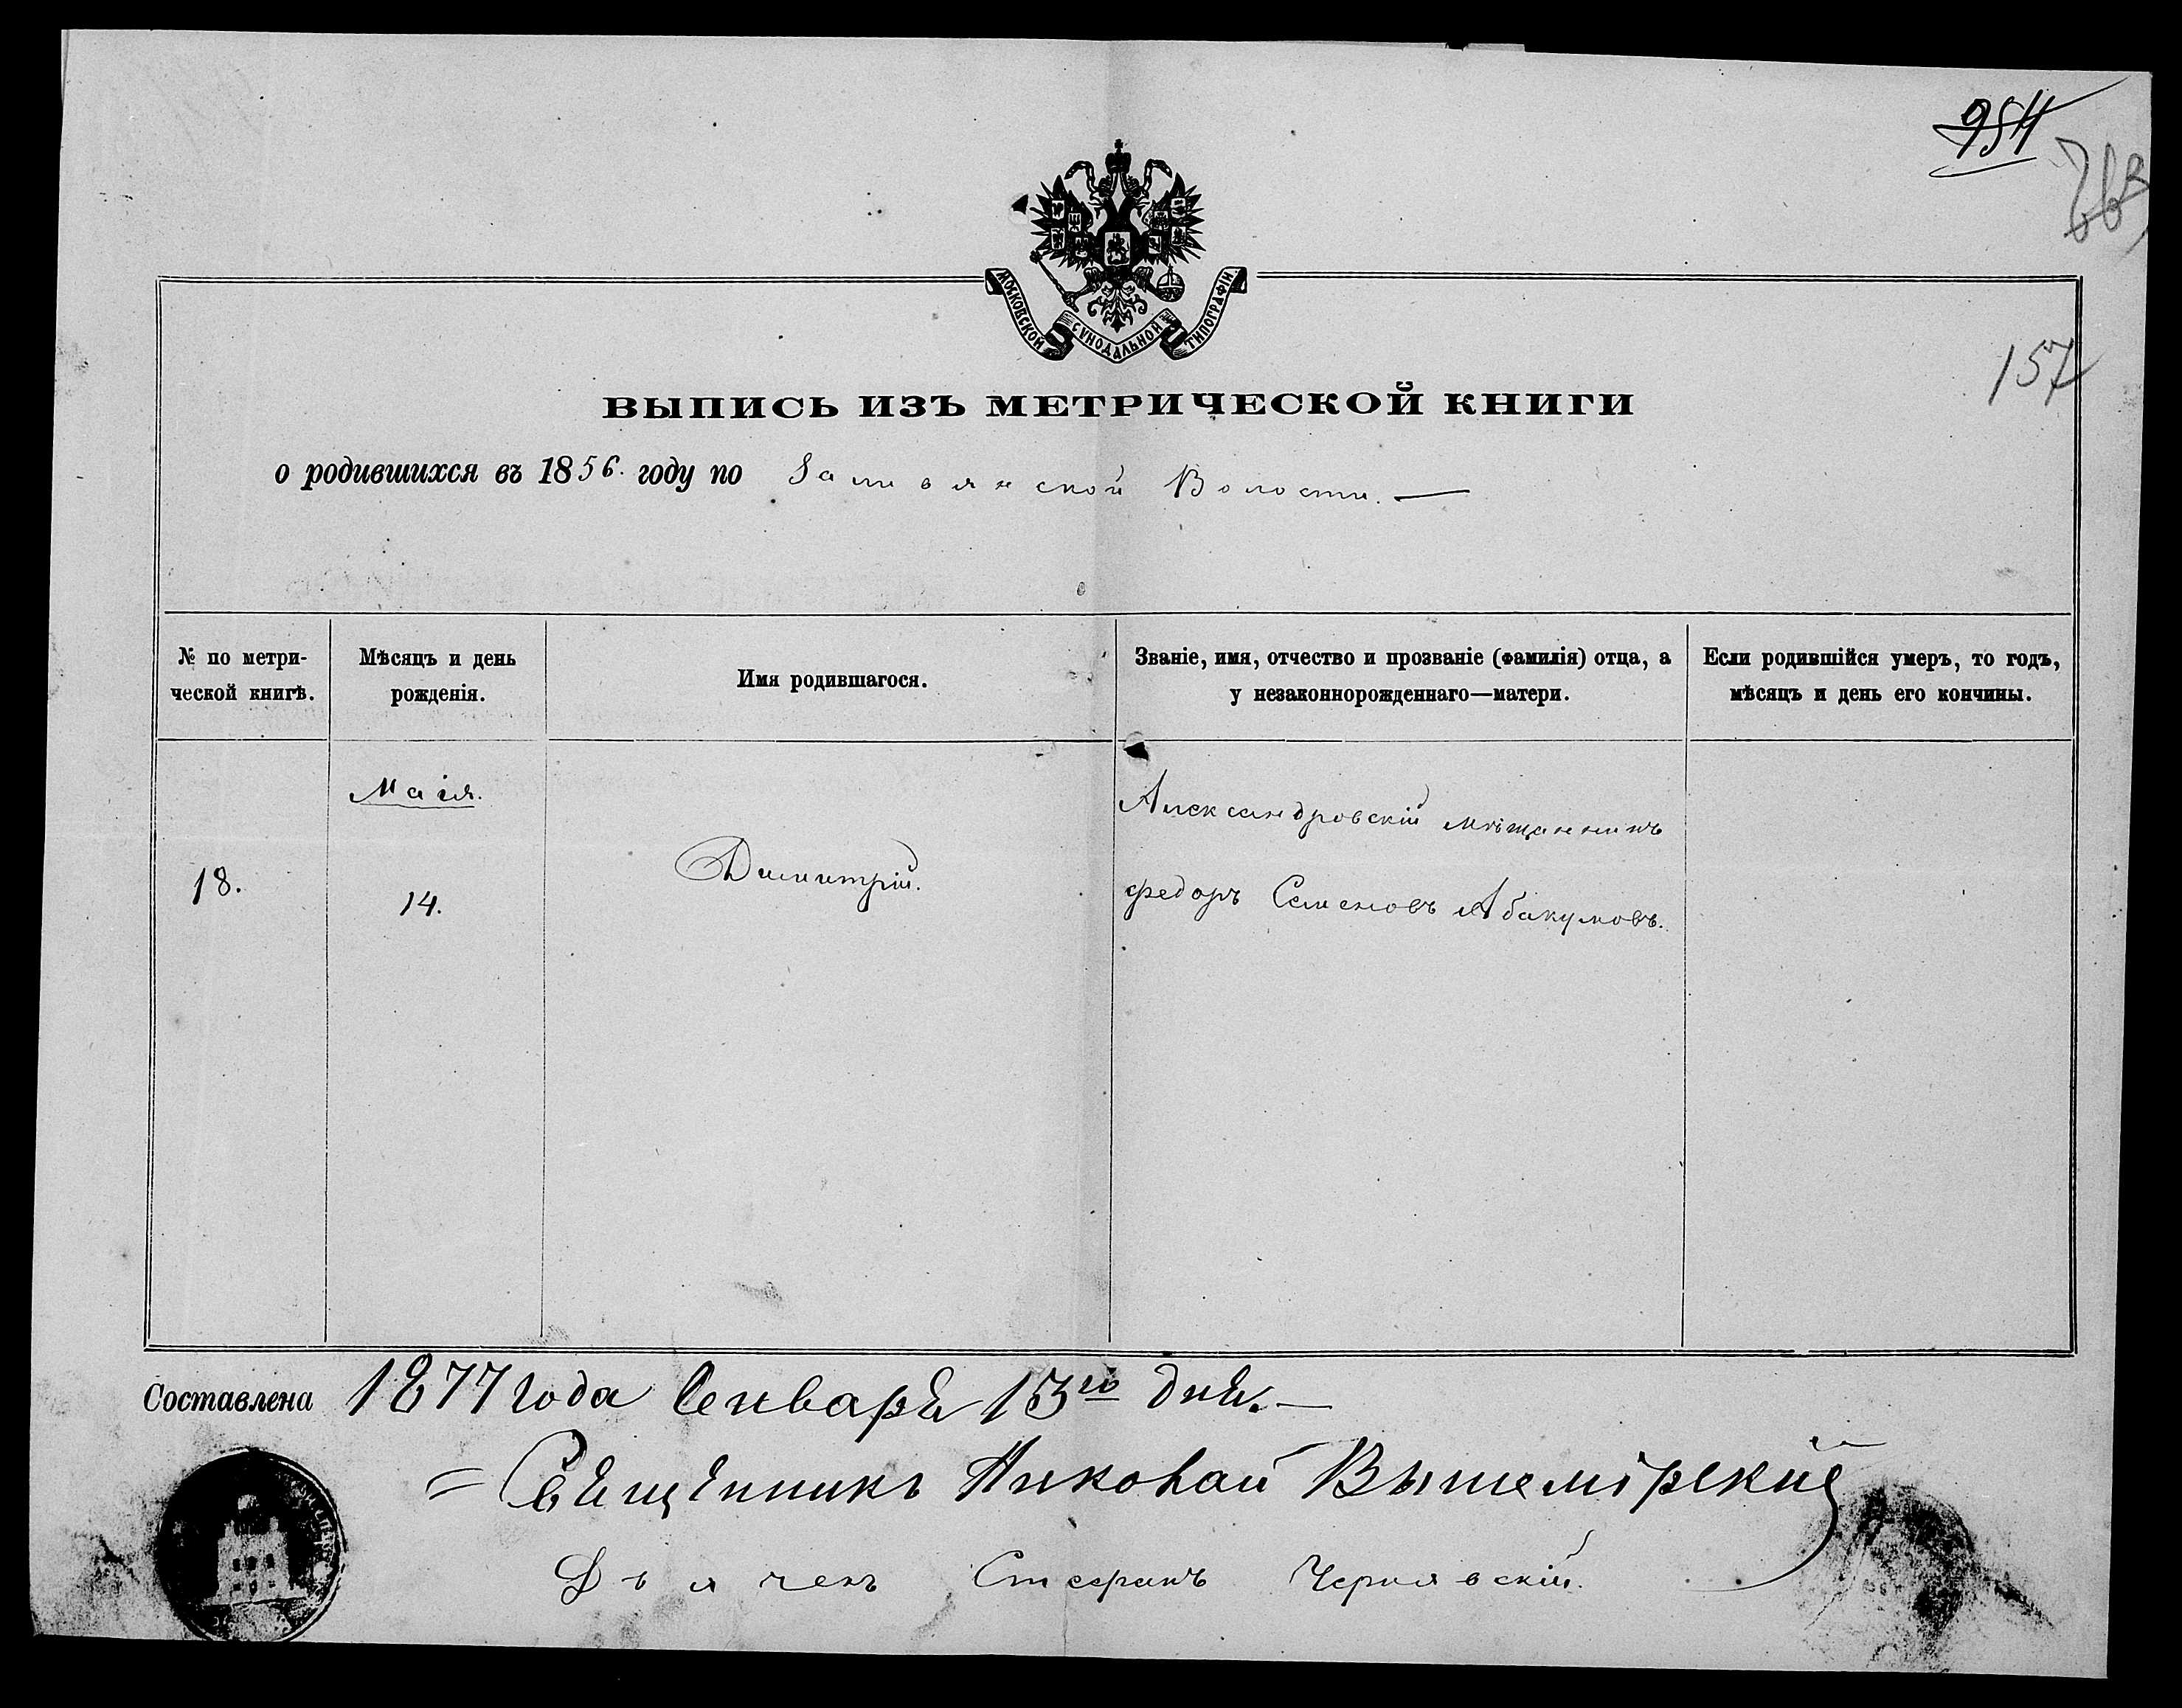 954
157
МОСКОВСКОЙ СѴНОДАЛЬНОЙ ТИПОГРАФІИ.
ВЫПИСЬ ИЗЪ МЕТРИЧЕСКОЙ КНИГИ
о родившихся въ 1856. году по Волости. —
№ по метри-
ческой книгѣ.
Мѣсяцъ и день
рожденія.
Имя родившагося.
Званіе, имя, отчество и прозваніе (фамилія) отца, а
у незаконнорожденнаго—матери.
Если родившійся умеръ, то годъ,
мѣсяцъ и день его кончины.
18.
Маія.
14.
Димитрій.
Александровскій мѣщанинъ
Федоръ Семеновъ Абакумовъ.
Составлена 1877 года Генваря 13го дня. —
= Священникъ Николай Вышемірскій
Дьячекъ Стефанъ Чернявскій.